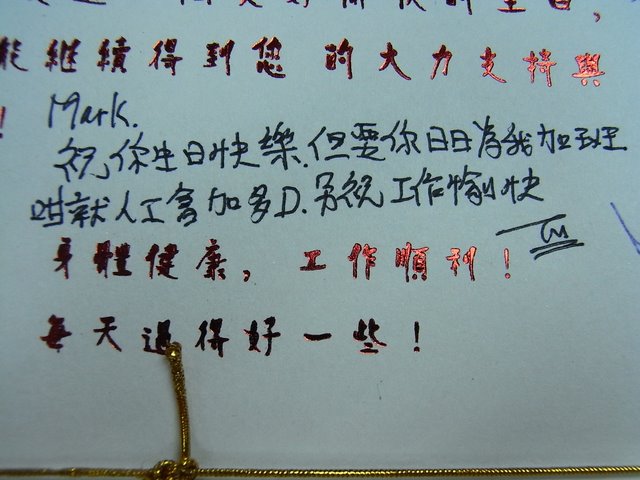 能繼續得到您的大力支持與
!
Mark.
祝你生日快樂.但要你日日為我加班
咁就人工會加多D.另祝工作愉快
身體健康，工作順利！
每天過得好一些！